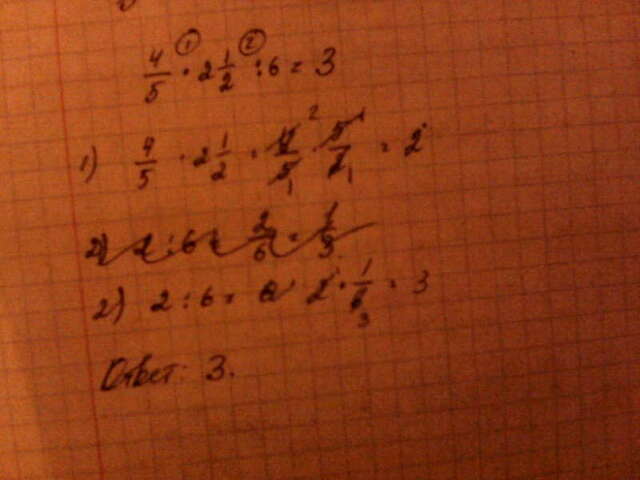 4/5 · 2 1/2 : 6 = 3
1) 4/5 · 2 1/2 = 4/5 · 5/2 = 2
2) 2 : 6 = 2/6 = 1/3
2) 2 : 6 = 2 · 1/6 = 3
Ответ: 3.